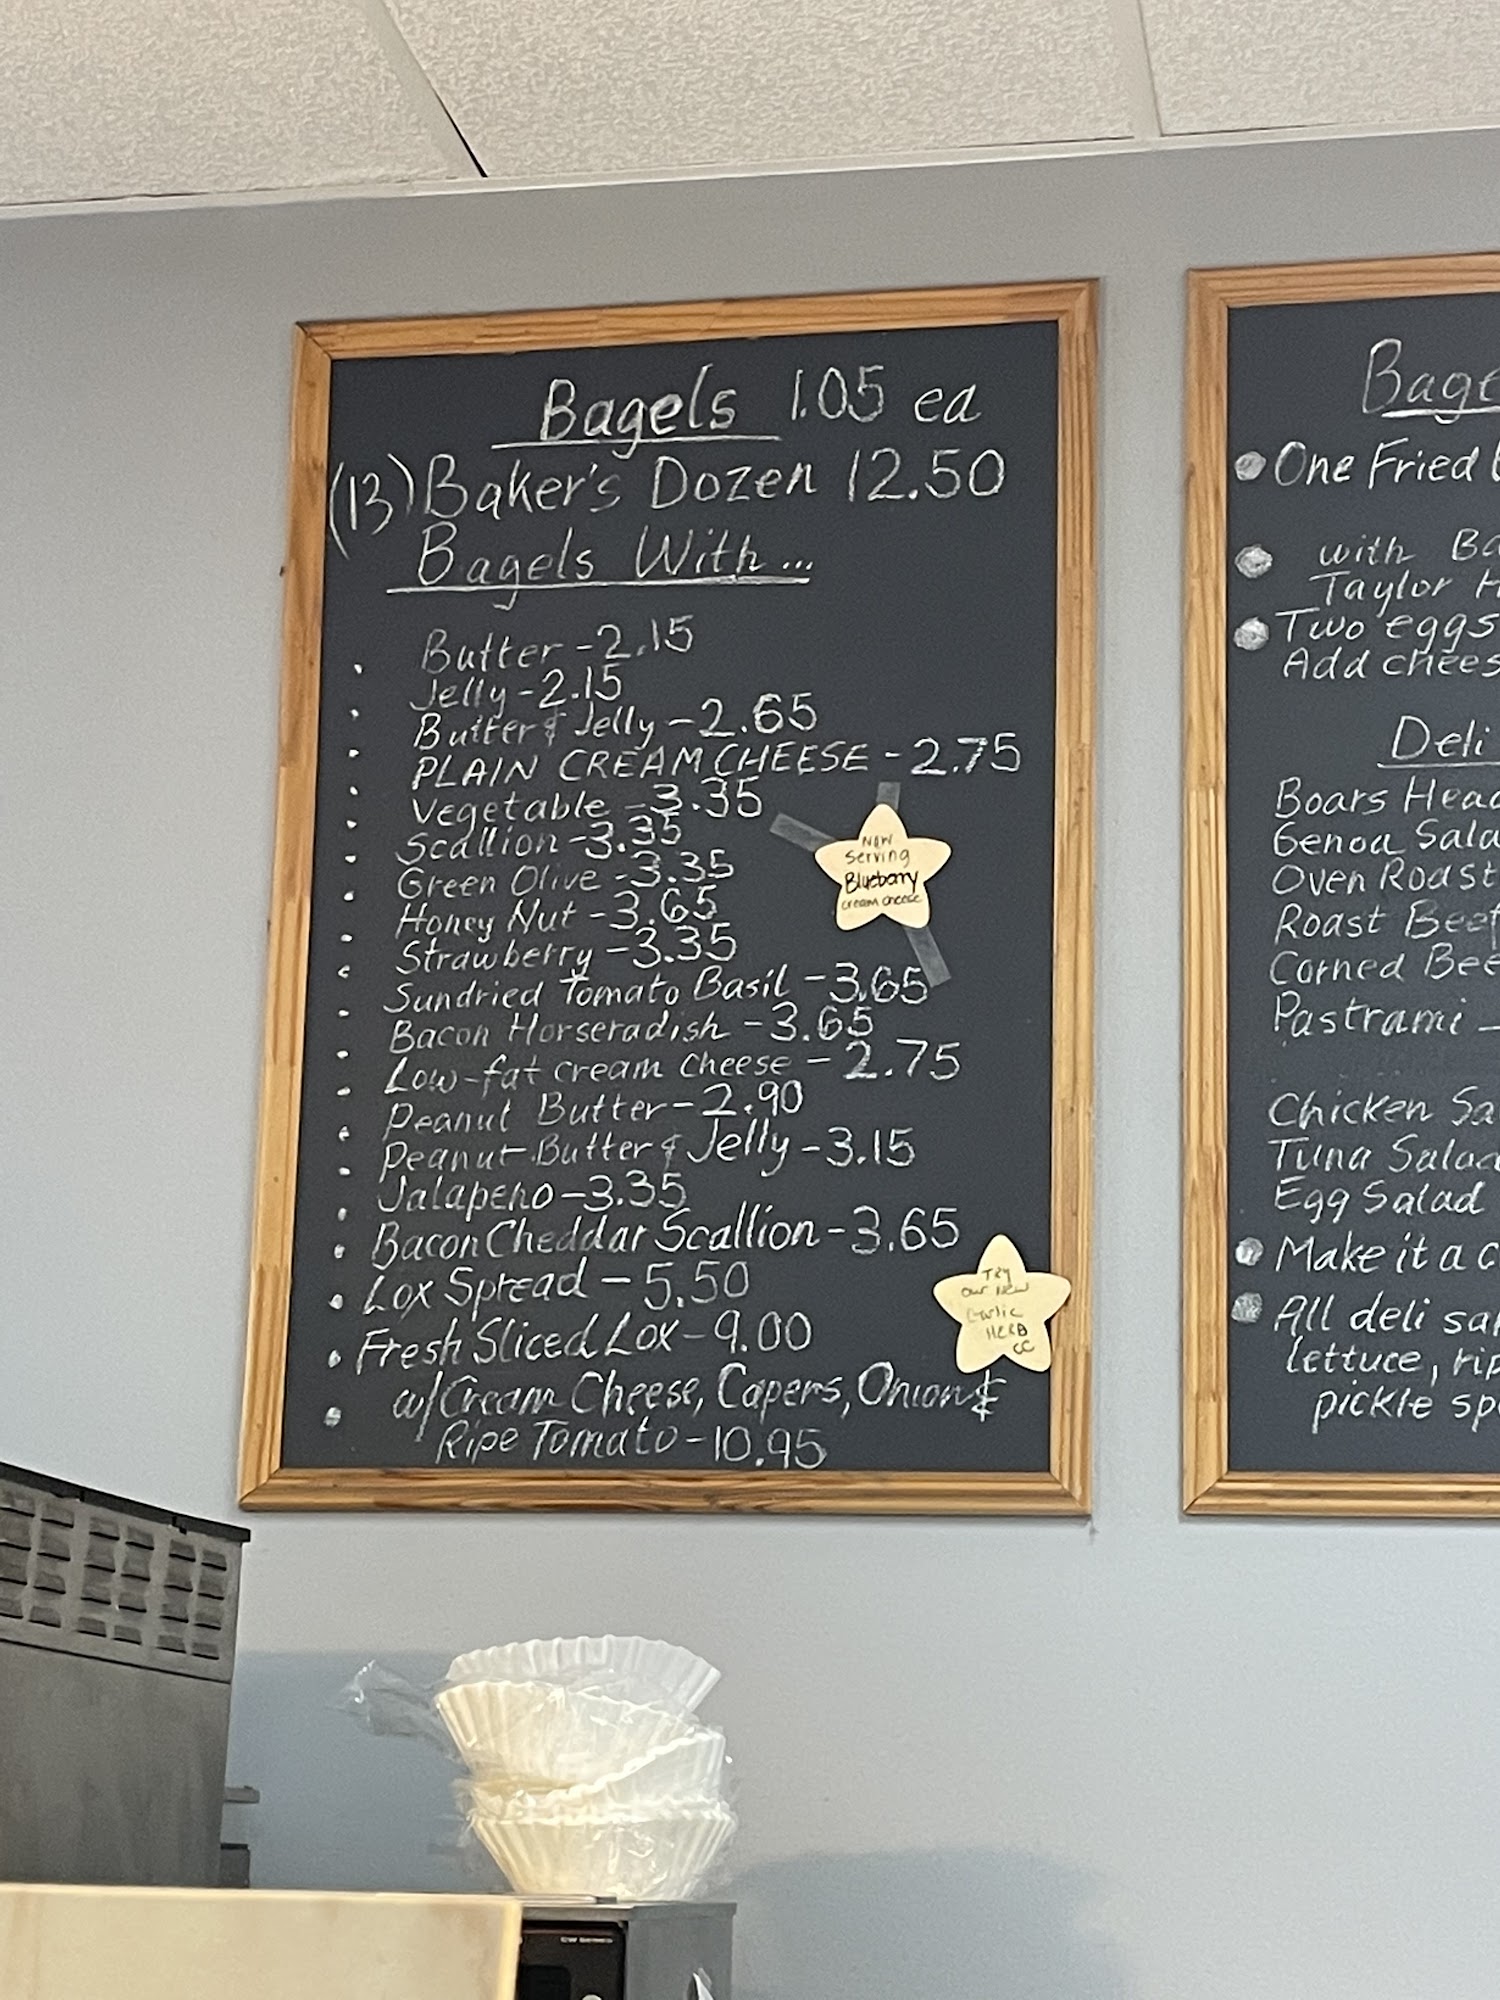 Bagels 1.05 ea
(13) Baker's Dozen 12.50
Bagels With...
Butter - 2.15
Jelly - 2.15
Butter & Jelly - 2.65
PLAIN CREAM CHEESE - 2.75
Vegetable - 3.35
Scallion - 3.35
Green Olive - 3.35
Honey Nut - 3.65
Strawberry - 3.35
Sundried Tomato Basil - 3.65
Bacon Horseradish - 3.65
Low-fat cream cheese - 2.75
Peanut Butter - 2.90
Peanut Butter & Jelly - 3.15
Jalapeno - 3.35
Bacon Cheddar Scallion - 3.65
Lox Spread - 5.50
Fresh Sliced Lox - 9.00
w/ Cream Cheese, Capers, Onion &
Ripe Tomato - 10.95
NOW
Serving
Blueberry
cream cheese
TRY
our NEW
Garlic
HERB
CC
Bage
One Fried
with Ba
Taylor H
Two eggs
Add chees
Deli
Boars Head
Genoa Sala
Oven Roast
Roast Beef
Corned Bee
Pastrami -
Chicken Sa
Tuna Salad
Egg Salad
Make it a c
All deli sa
lettuce, rip
pickle sp